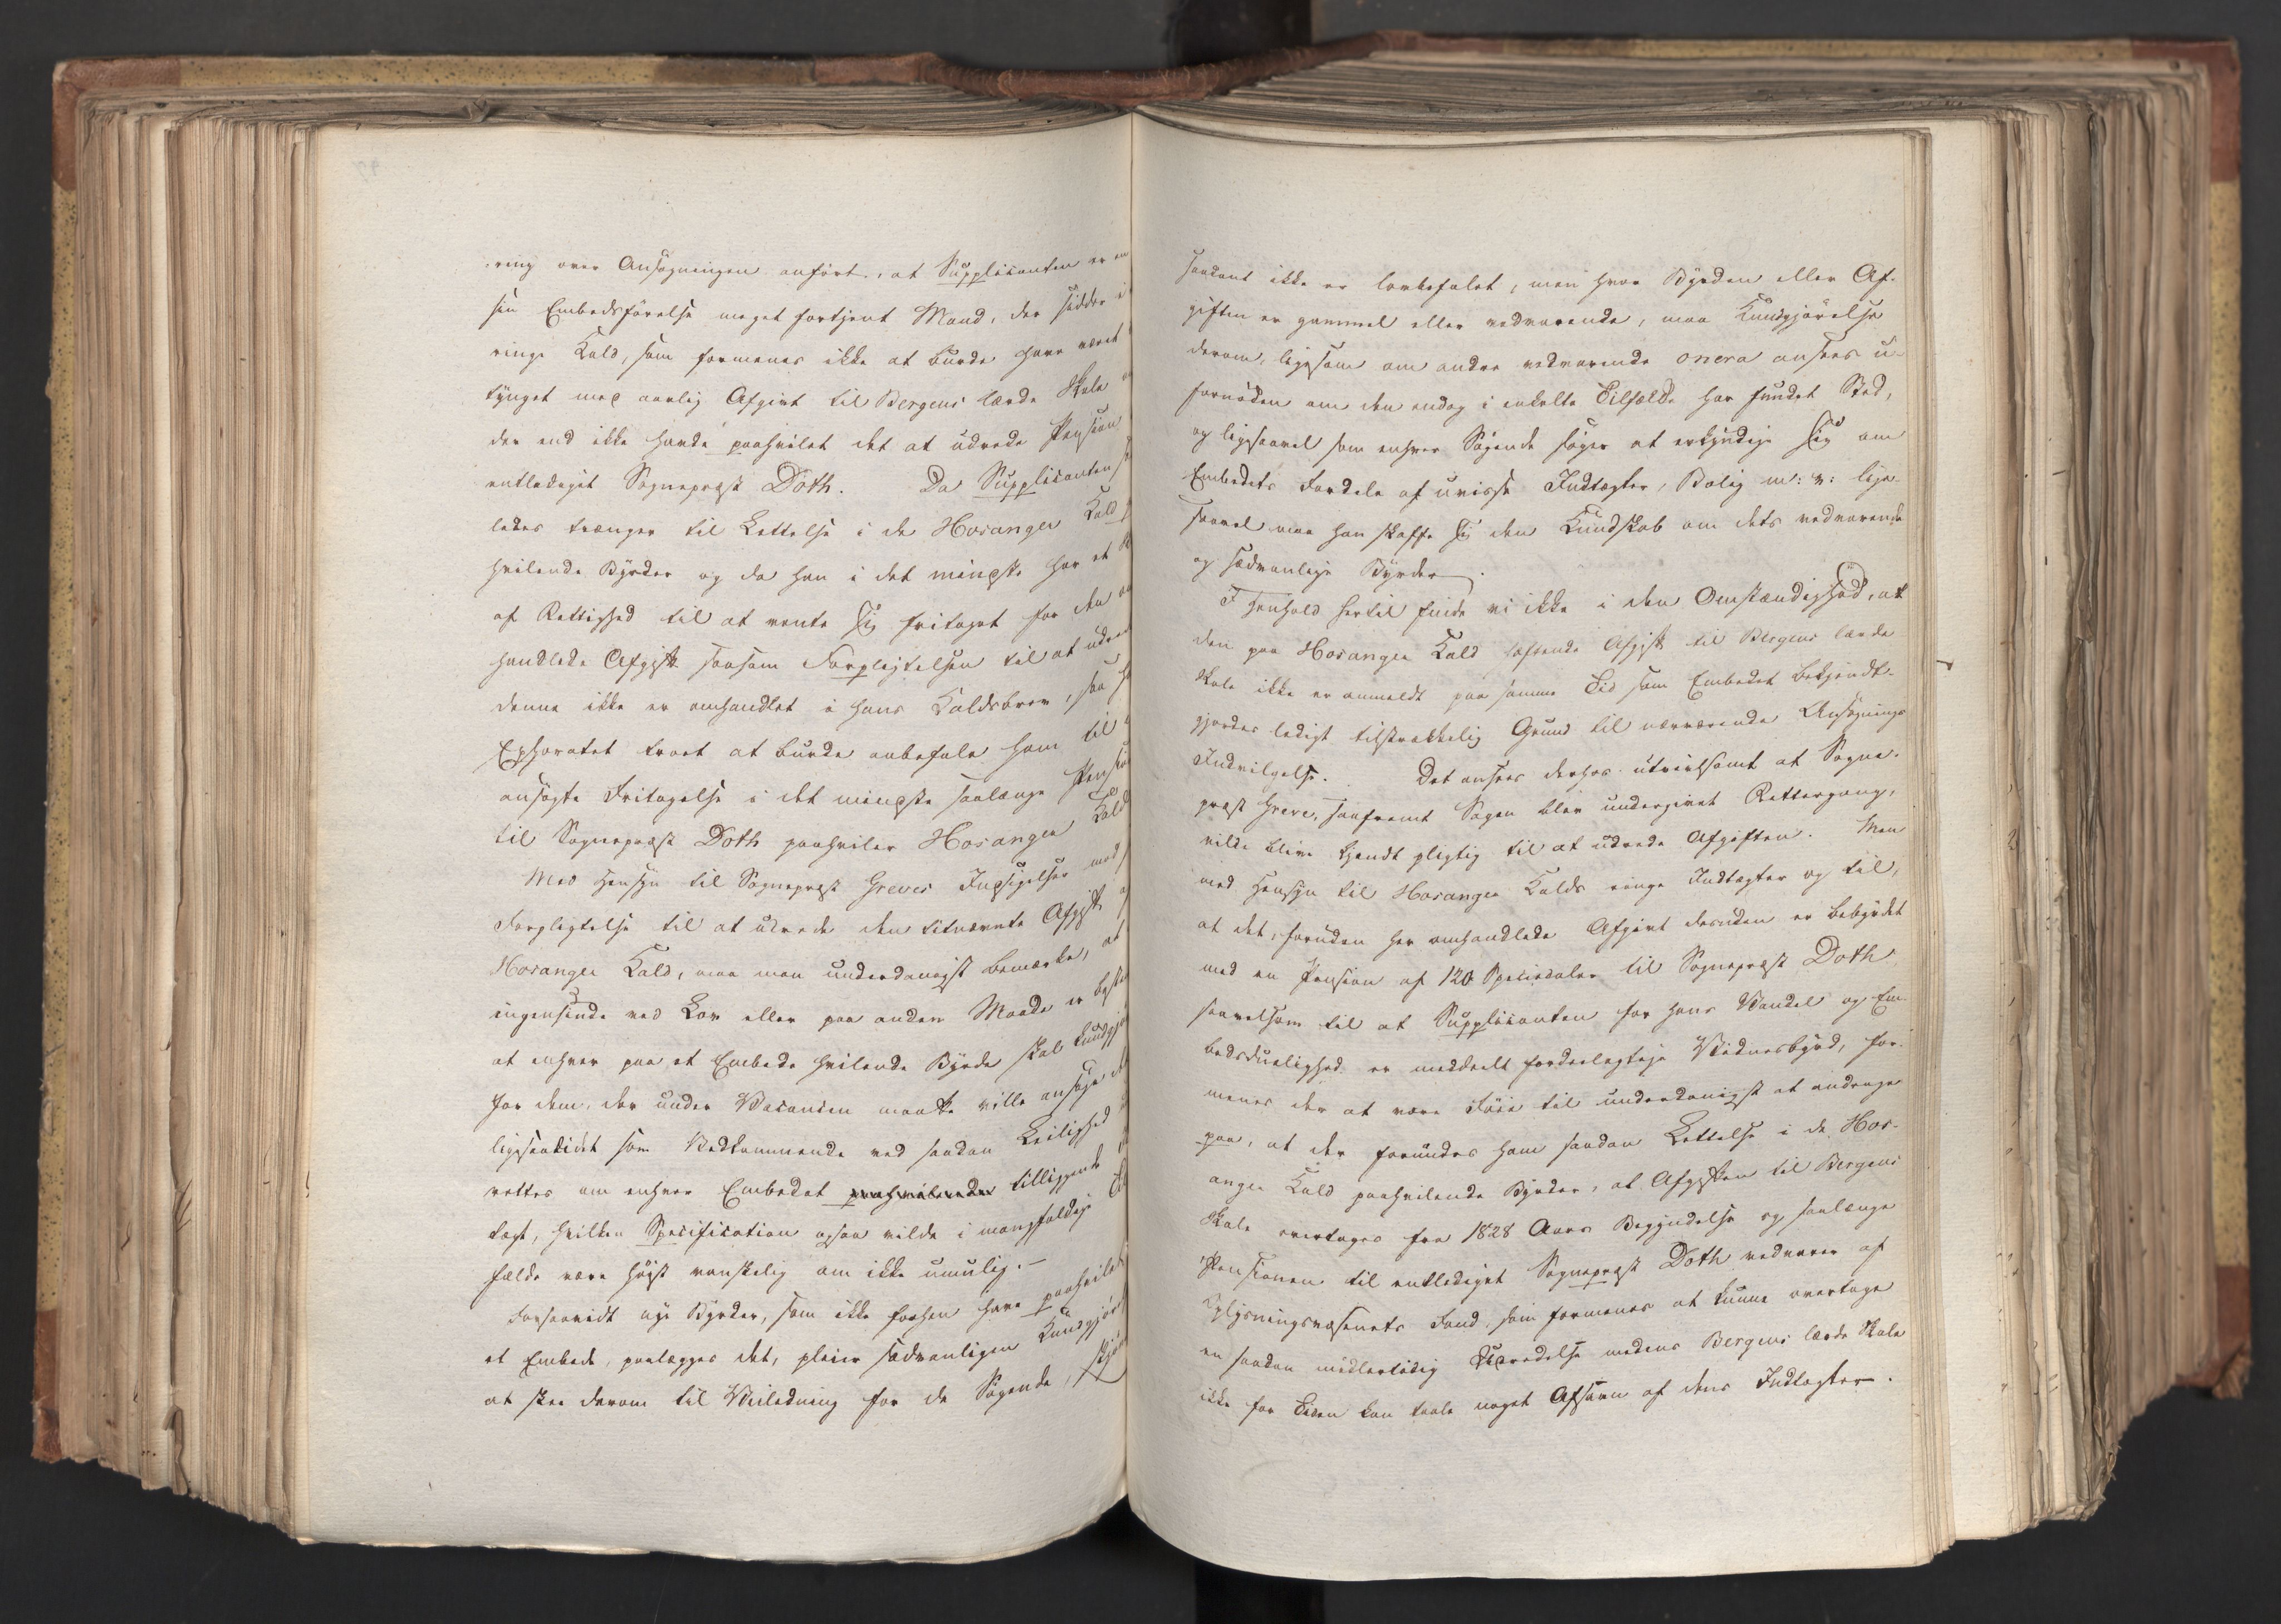 ring over Ansøgningen anført, at Supplicanten er en
sin Embedsførelse meget fortjent Mand, der sidder i
ringe Kald, som formenes ikke at burde have været
tynget med aarlig Afgivt til Bergens lærde Skole
der end ikke havde paahvilet det at udrede Pension
entlediget Sognepræst Döth. Da Supplicanten
ledes trænger til Lettelse i de Hosanger Kald
hvilende Byrder og da han i det mindste har et
af Rettighed til at vente sig fritaget for den
handlede Afgift saasom Forpligtelsen til at udrede
denne ikke er omhandlet i hans Kaldsbrev, saa
Ephoratet troet at burde anbefale ham til
ansøgte Fritagelse i det mindste saalænge Pension
til Sognepræst Doth paahviler Hosanger Kald
Med Hensyn til Sognepræst Greves Indsigelser mod
Forpligtelse til at udrede den titnævnte Afgift
Hosanger Kald, maa man underdanigst bemærke, at
ingensinde ved Lov eller paa anden Maade er
at enhver paa et Embede hvilende Byrde skal kundgjø
for dem, der under Vacancen maatte ville ansøge
ligesaalidet som Vedkommende ved saadan Leilighed
rettes om enhver Embedet paahvilende tilliggende
tægt, hvilken Specification ogsaa vilde i mangfoldige
fælde være høist vanskelig om ikke umulig.—
Forsaavidt nye Byrder, som ikke forhen have paahvilet
et Embede, paalægges det, pleier sædvanligen Kundgjør
at skee derom til Veiledning for de Søgende,
saadant ikke er lovbefalet, men hvor Byrden eller Af-
giften er gammel eller vedvarende, maa Kundgjørelse
derom, ligesom om andre vedvarende onera ansees u-
fornøden om den endog i enkelte Tilfælde har fundet Sted,
og ligesaavel som enhver Søgende søger at erkyndige sig om
Embedets Fordele af uvisse Indtægter, Bolig m: v: lige-
saavel maa han skaffe sig den Kundskab om dets vedvarende
og sædvanlige Byrder.
I Henhold hertil finde vi ikke i den Omstændighed, at
den paa Hosanger Kald heftende Afgift til Bergens lærde
Skole ikke er anmeldt paa samme Tid som Embedet bekjendt-
gjordes ledigt tilstrækkelig Grund til nærværende Ansøgnings
Indvilgelse. Det ansees derhos utvivlsomt at Sogne-
præst Greve, saafremt Sagen blev undergivet Rettergang,
vilde blive kjendt pligtig til at udrede Afgiften. Men
med Hensyn til Hosanger Kalds ringe Indtægter og til,
at det, foruden her omhandlede Afgivt desuden er bebyrdet
med en Pension af 120 Speciedaler til Sognepræst Doth
saavelsom til at Supplicanten for hans Vandel og Em-
bedsduelighed er meddeelt fordeelagtige Vidnesbyrd, for-
menes der at være Føie til underdanigst at andrage
paa, at der forundes ham saadan Lettelse i de Hos-
anger Kald paahvilende Byrder, at Afgiften til Bergens
Skole overtages fra 1828 Aars Begyndelse og saalænge
Pensionen til entlediget Sognepræst Doth vedvarer af
Oplysningsvæsenets Fond, som formenes at kunne overtage
en saadan midlertidig Udredelse medens Bergens lærde Skole
ikke for Tiden kan taale noget Afsavn af dens Indtægter.